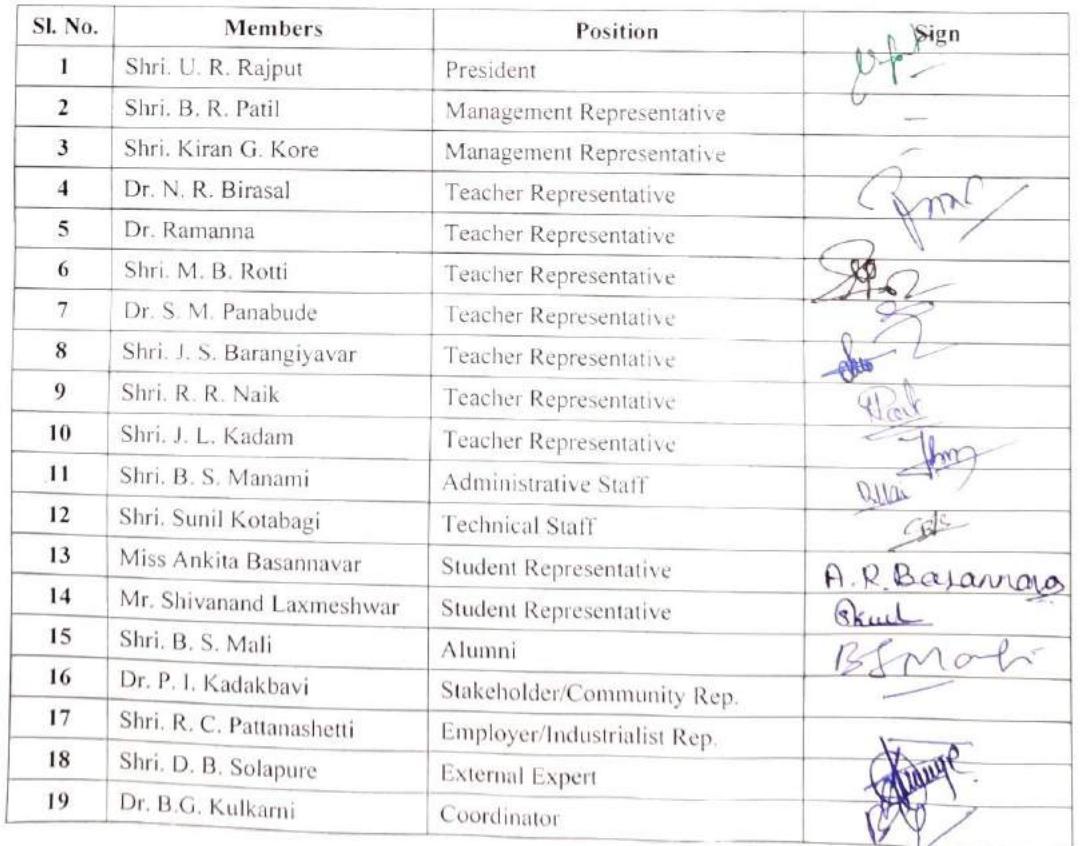 Sl. No. Members Position Sign
1 Shri. U. R. Rajput President
2 Shri. B. R. Patil Management Representative –
3 Shri. Kiran G. Kore Management Representative –
4 Dr. N. R. Birasal Teacher Representative
5 Dr. Ramanna Teacher Representative
6 Shri. M. B. Rotti Teacher Representative
7 Dr. S. M. Panabude Teacher Representative
8 Shri. J. S. Barangiyavar Teacher Representative
9 Shri. R. R. Naik Teacher Representative
10 Shri. J. L. Kadam Teacher Representative
11 Shri. B. S. Manami Administrative Staff
12 Shri. Sunil Kotabagi Technical Staff
13 Miss Ankita Basannavar Student Representative A. R. Basannava
14 Mr. Shivanand Laxmeshwar Student Representative
15 Shri. B. S. Mali Alumni BSMali
16 Dr. P. I. Kadakbavi Stakeholder/Community Rep. —
17 Shri. R. C. Pattanashetti Employer/Industrialist Rep.
18 Shri. D. B. Solapure External Expert
19 Dr. B.G. Kulkarni Coordinator